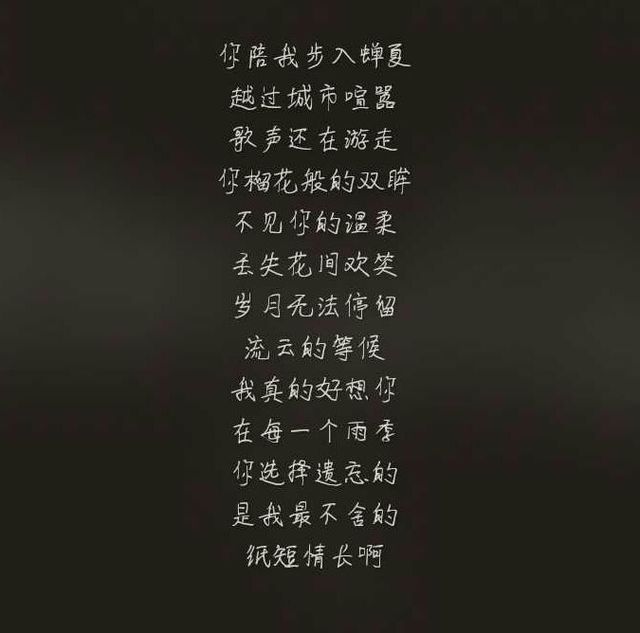 你陪我步入蝉夏
越过城市喧嚣
歌声还在游走
你榴花般的双眸
不见你的温柔
丢失花间欢笑
岁月无法停留
流云的等候
我真的好想你
在每一个雨季
你选择遗忘的
是我最不舍的
纸短情长啊